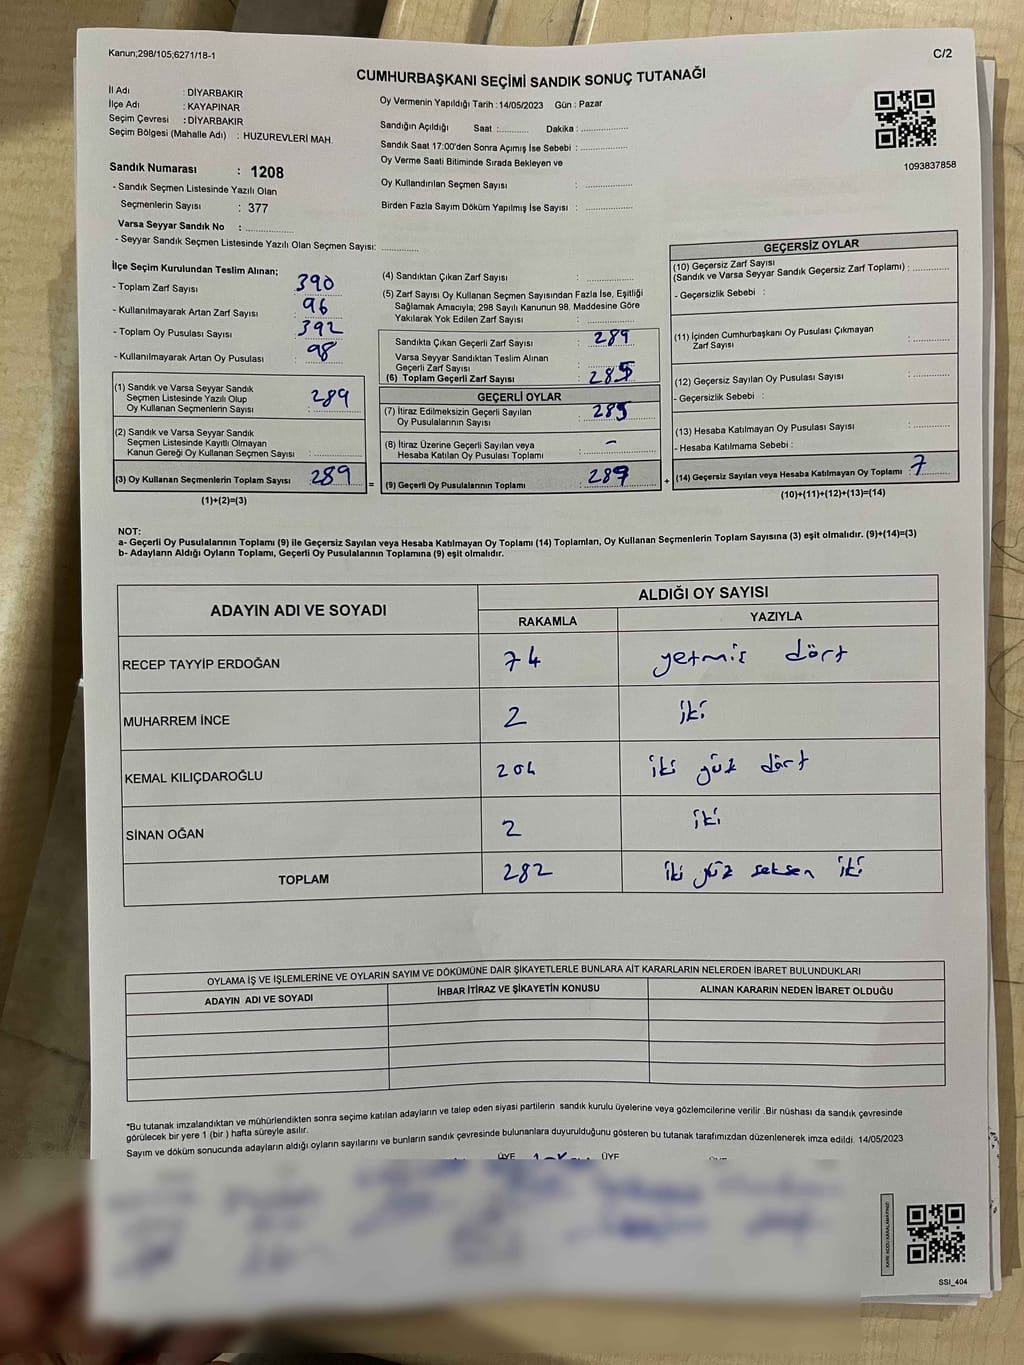 Kanun;298/105;6271/18-1
C/2
CUMHURBAŞKANI SEÇİMİ SANDIK SONUÇ TUTANAĞI
İl Adı : DİYARBAKIR
İlçe Adı : KAYAPINAR
Seçim Çevresi : DİYARBAKIR
Seçim Bölgesi (Mahalle Adı) : HUZUREVLERİ MAH.
Oy Vermenin Yapıldığı Tarih : 14/05/2023 Gün : Pazar
Sandığın Açıldığı Saat :........... Dakika : ...................
Sandık Saat 17:00'den Sonra Açımış İse Sebebi : ...................
Oy Verme Saati Bitiminde Sırada Bekleyen ve
Oy Kullandırılan Seçmen Sayısı : ...................
Birden Fazla Sayım Döküm Yapılmış İse Sayısı : ...................
1093837858
Sandık Numarası : 1208
- Sandık Seçmen Listesinde Yazılı Olan
Seçmenlerin Sayısı : 377
Varsa Seyyar Sandık No : ...................
- Seyyar Sandık Seçmen Listesinde Yazılı Olan Seçmen Sayısı: ..............
İlçe Seçim Kurulundan Teslim Alınan;
- Toplam Zarf Sayısı : 390
- Kullanılmayarak Artan Zarf Sayısı : 96
- Toplam Oy Pusulası Sayısı : 392
- Kullanılmayarak Artan Oy Pusulası : 98
(1) Sandık ve Varsa Seyyar Sandık
Seçmen Listesinde Yazılı Olup
Oy Kullanan Seçmenlerin Sayısı : 289
(2) Sandık ve Varsa Seyyar Sandık
Seçmen Listesinde Kayıtlı Olmayan
Kanun Gereği Oy Kullanan Seçmen Sayısı : ...............
(3) Oy Kullanan Seçmenlerin Toplam Sayısı : 289 =
(1)+(2)=(3)
(4) Sandıktan Çıkan Zarf Sayısı : ...................
(5) Zarf Sayısı Oy Kullanan Seçmen Sayısından Fazla İse, Eşitliği
Sağlamak Amacıyla; 298 Sayılı Kanunun 98. Maddesine Göre
Yakılarak Yok Edilen Zarf Sayısı : ...................
Sandıkta Çıkan Geçerli Zarf Sayısı : 289
Varsa Seyyar Sandıktan Teslim Alınan
Geçerli Zarf Sayısı : ...............
(6) Toplam Geçerli Zarf Sayısı :
GEÇERLİ OYLAR
(7) İtiraz Edilmeksizin Geçerli Sayılan
Oy Pusulalarının Sayısı :
(8) İtiraz Üzerine Geçerli Sayılan veya
Hesaba Katılan Oy Pusulası Toplamı : -
(9) Geçerli Oy Pusulalarının Toplamı : +
GEÇERSİZ OYLAR
(10) Geçersiz Zarf Sayısı
(Sandık ve Varsa Seyyar Sandık Geçersiz Zarf Toplamı) : ...............
- Geçersizlik Sebebi :
(11) İçinden Cumhurbaşkanı Oy Pusulası Çıkmayan
Zarf Sayısı : ...............
(12) Geçersiz Sayılan Oy Pusulası Sayısı : ...............
- Geçersizlik Sebebi :
(13) Hesaba Katılmayan Oy Pusulası Sayısı : ...............
- Hesaba Katılmama Sebebi :
(14) Geçersiz Sayılan veya Hesaba Katılmayan Oy Toplamı : 7
(10)+(11)+(12)+(13)=(14)
NOT:
a- Geçerli Oy Pusulalarının Toplamı (9) ile Geçersiz Sayılan veya Hesaba Katılmayan Oy Toplamı (14) Toplamları, Oy Kullanan Seçmenlerin Toplam Sayısına (3) eşit olmalıdır. (9)+(14)=(3)
b- Adayların Aldığı Oyların Toplamı, Geçerli Oy Pusulalarının Toplamına (9) eşit olmalıdır.
ADAYIN ADI VE SOYADI ALDIĞI OY SAYISI
RAKAMLA YAZIYLA
RECEP TAYYİP ERDOĞAN 74 yetmiş dört
MUHARREM İNCE 2 iki
KEMAL KILIÇDAROĞLU 204 iki yüz dört
SİNAN OĞAN 2 iki
TOPLAM 282 iki yüz seksen iki
OYLAMA İŞ VE İŞLEMLERİNE VE OYLARIN SAYIM VE DÖKÜMÜNE DAİR ŞİKAYETLERLE BUNLARA AİT KARARLARIN NELERDEN İBARET BULUNDUKLARI
ADAYIN ADI VE SOYADI İHBAR İTİRAZ VE ŞİKAYETİN KONUSU ALINAN KARARIN NEDEN İBARET OLDUĞU
*Bu tutanak imzalandıktan ve mühürlendikten sonra seçime katılan adayların ve talep eden siyasi partilerin sandık kurulu üyelerine veya gözlemcilerine verilir .Bir nüshası da sandık çevresinde
görülecek bir yere 1 (bir ) hafta süreyle asılır.
Sayım ve döküm sonucunda adayların aldığı oyların sayılarını ve bunların sandık çevresinde bulunanlara duyurulduğunu gösteren bu tutanak tarafımızdan düzenlenerek imza edildi. 14/05/2023
ÜYE ÜYE
SSİ_404